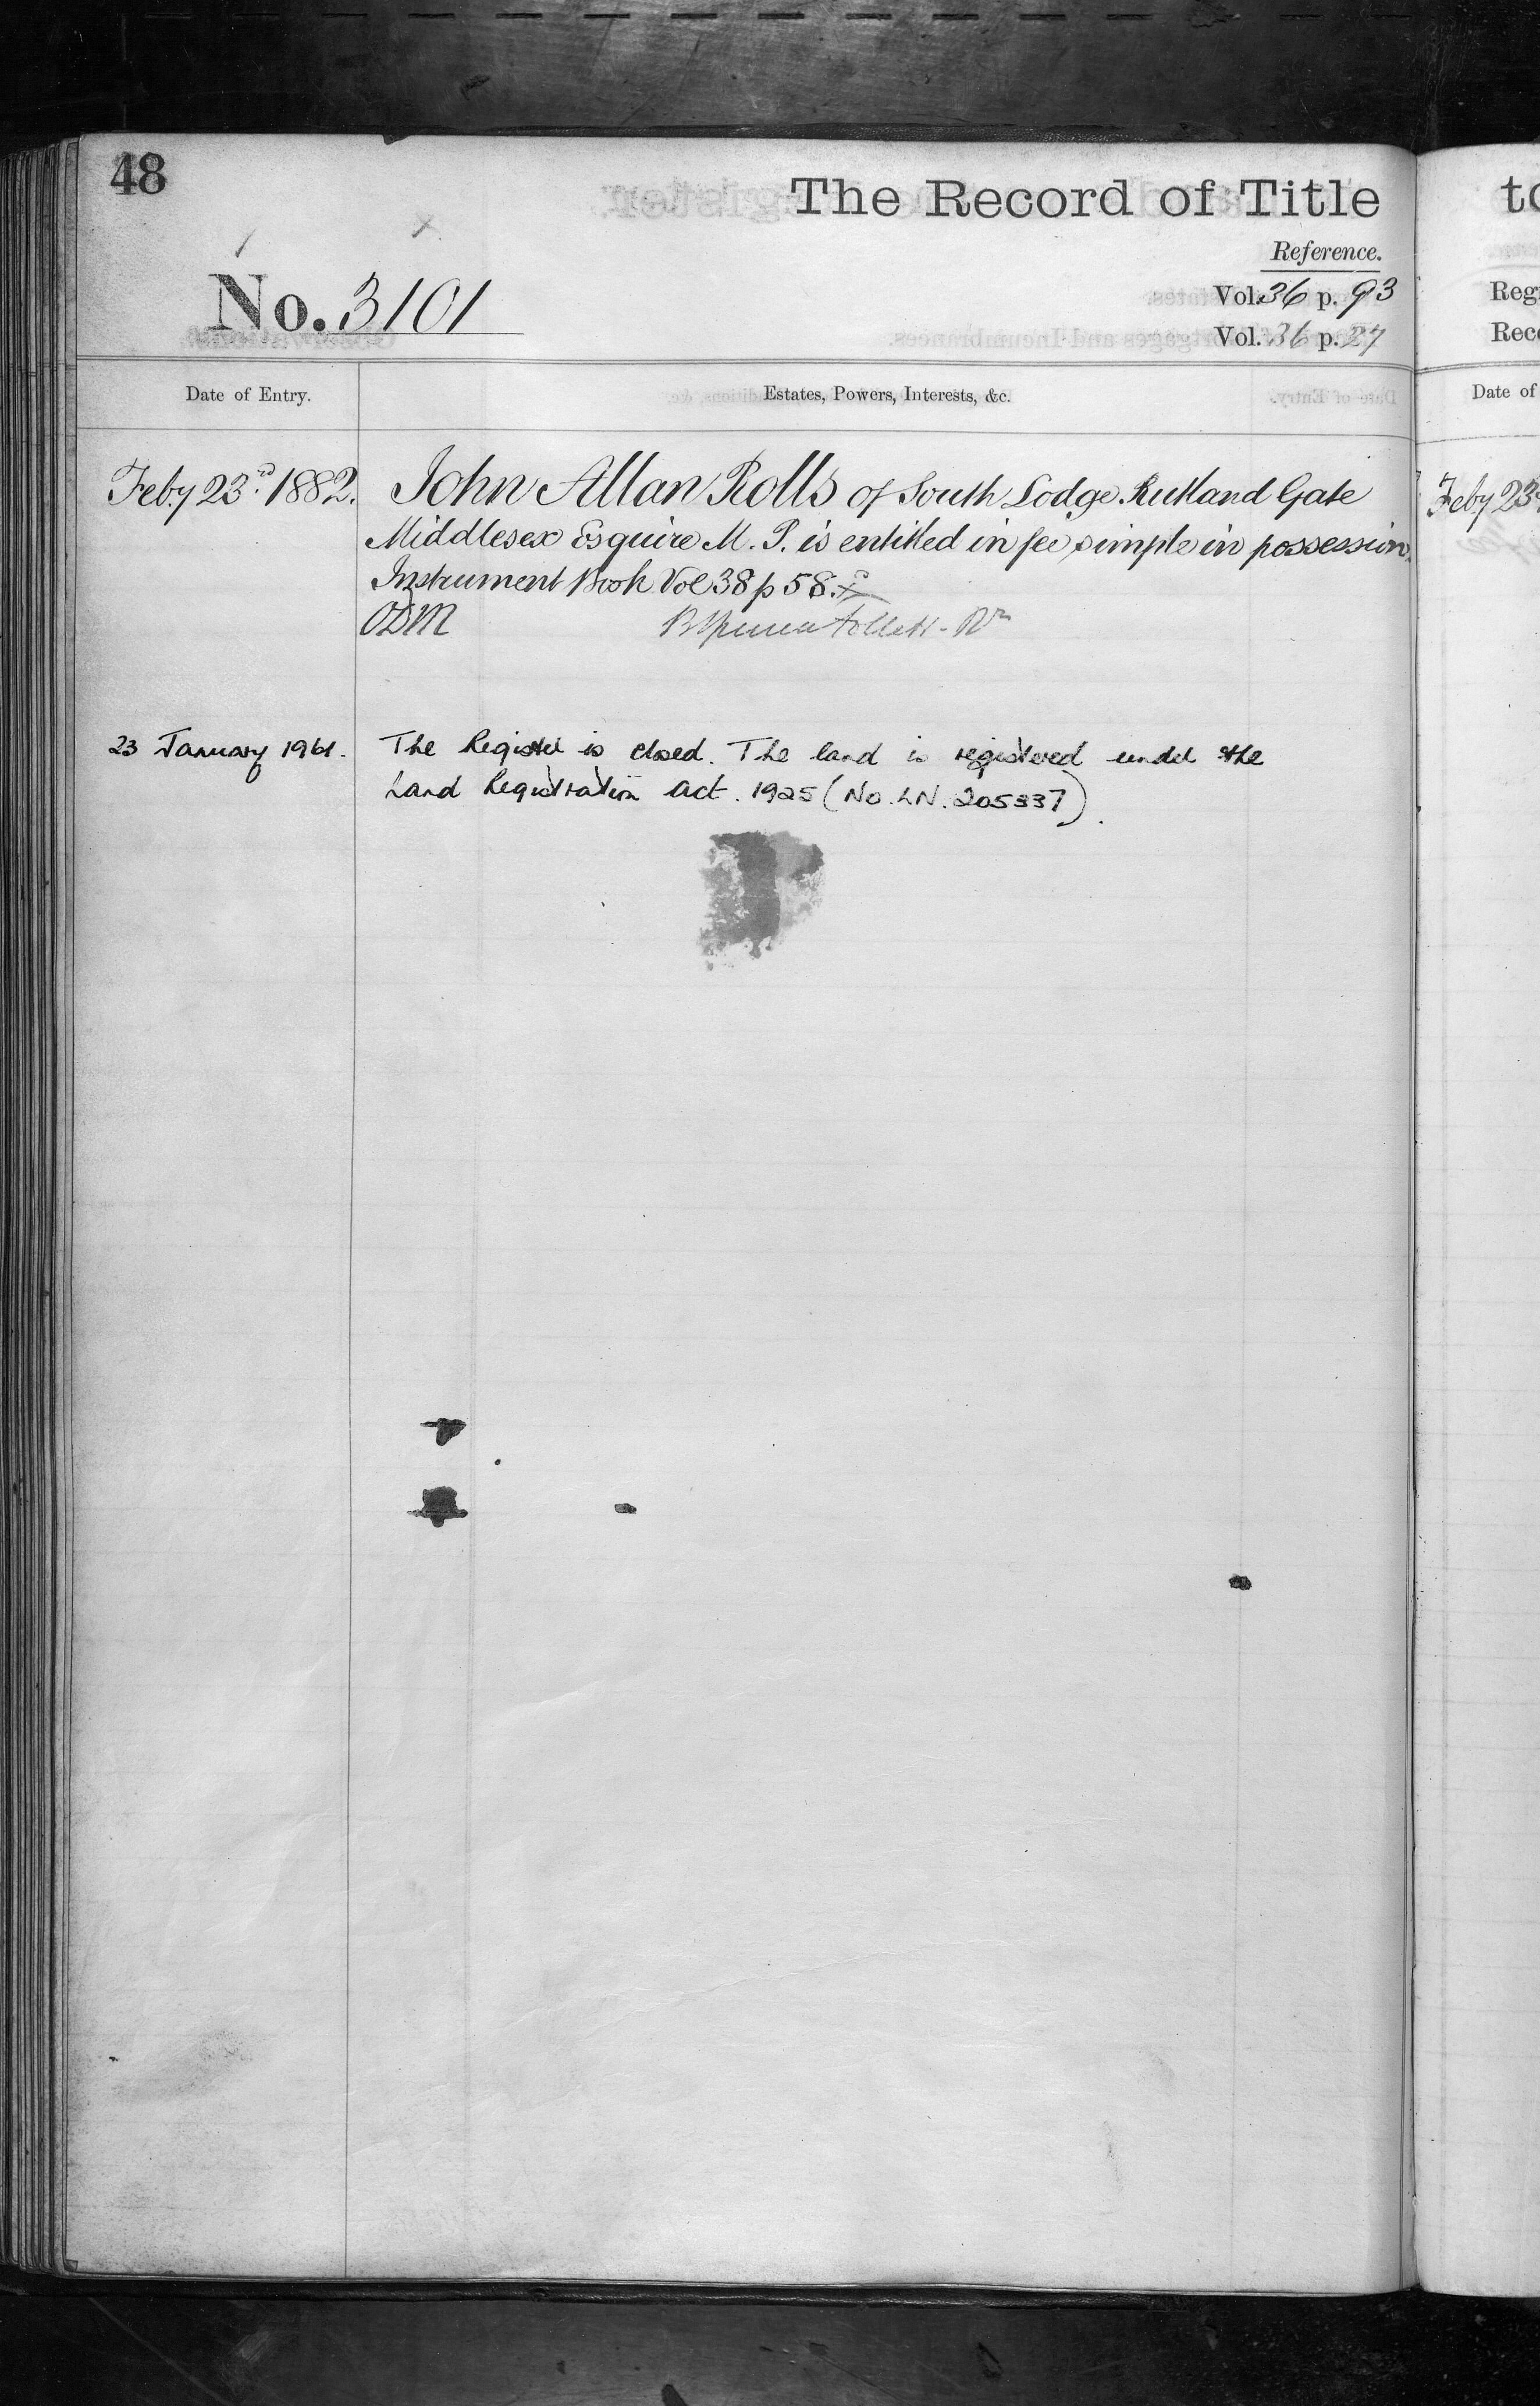 48
The Record of Title
Reference.
No. 3101
Vol. 36 p. 93
Vol. 36 p. 27
Date of Entry.
Estates, Powers, Interests, &c.
Feby 23rd 1882.
John Allan Rolls of South Lodge Rutland Gate
Middlesex Esquire M. P. is entitled in fee simple in possession.
Instrument Book Vol 38 p 58.
ODM
B Spencer Follett - Rr
23 January 1961.
The Register is closed. The land is registered under the
Land Registration Act. 1925 (No. LN. 205337).
to
Reg
Rec
Date of
Feby 23